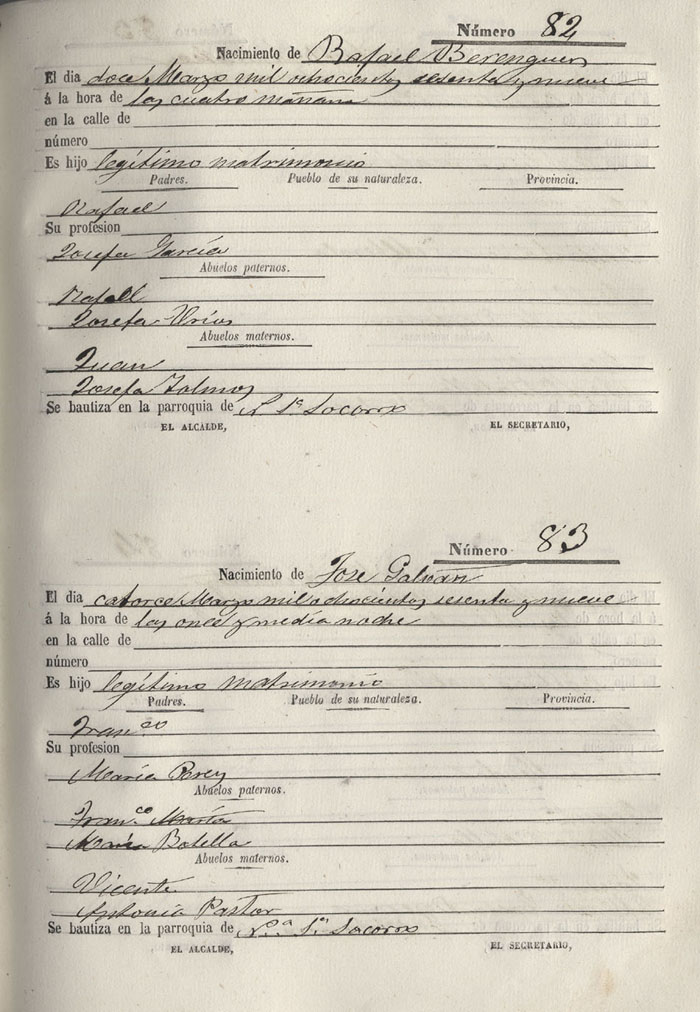 Número 82
Nacimiento de Rafael Berenguer
El dia doce Marzo mil ochocientos sesenta y nueve
á la hora de las cuatro mañana
en la calle de
número
Es hijo legítimo matrimonio
Padres. Pueblo de su naturaleza. Provincia.
Rafael
Su profesion
Josefa García
Abuelos paternos.
Rafael
Josefa Urios
Abuelos maternos.
Juan
Josefa
Se bautiza en la parroquia de Nª Sª Socorro
EL ALCALDE, EL SECRETARIO,
Número 83
Nacimiento de Jose Galvañ
El dia catorce Marzo mil ochocientos sesenta y nueve
á la hora de las once y media noche
en la calle de
número
Es hijo legítimo matrimonio
Padres. Pueblo de su naturaleza. Provincia.
Franco
Su profesion
María Perez
Abuelos paternos.
Franco María
María Botella
Abuelos maternos.
Vicente
Antonia Pastor
Se bautiza en la parroquia de Nª Sª Socorro
EL ALCALDE, EL SECRETARIO,